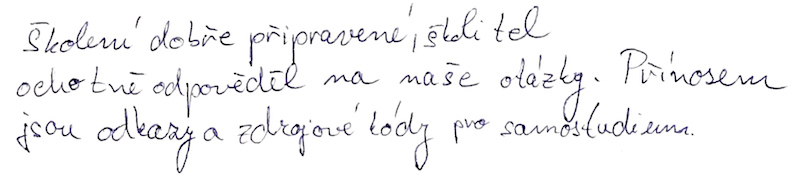 Školení dobře připravené, školitel
ochotně odpověděl na naše otázky. Přínosem
jsou odkazy a zdrojové kódy pro samostudium.